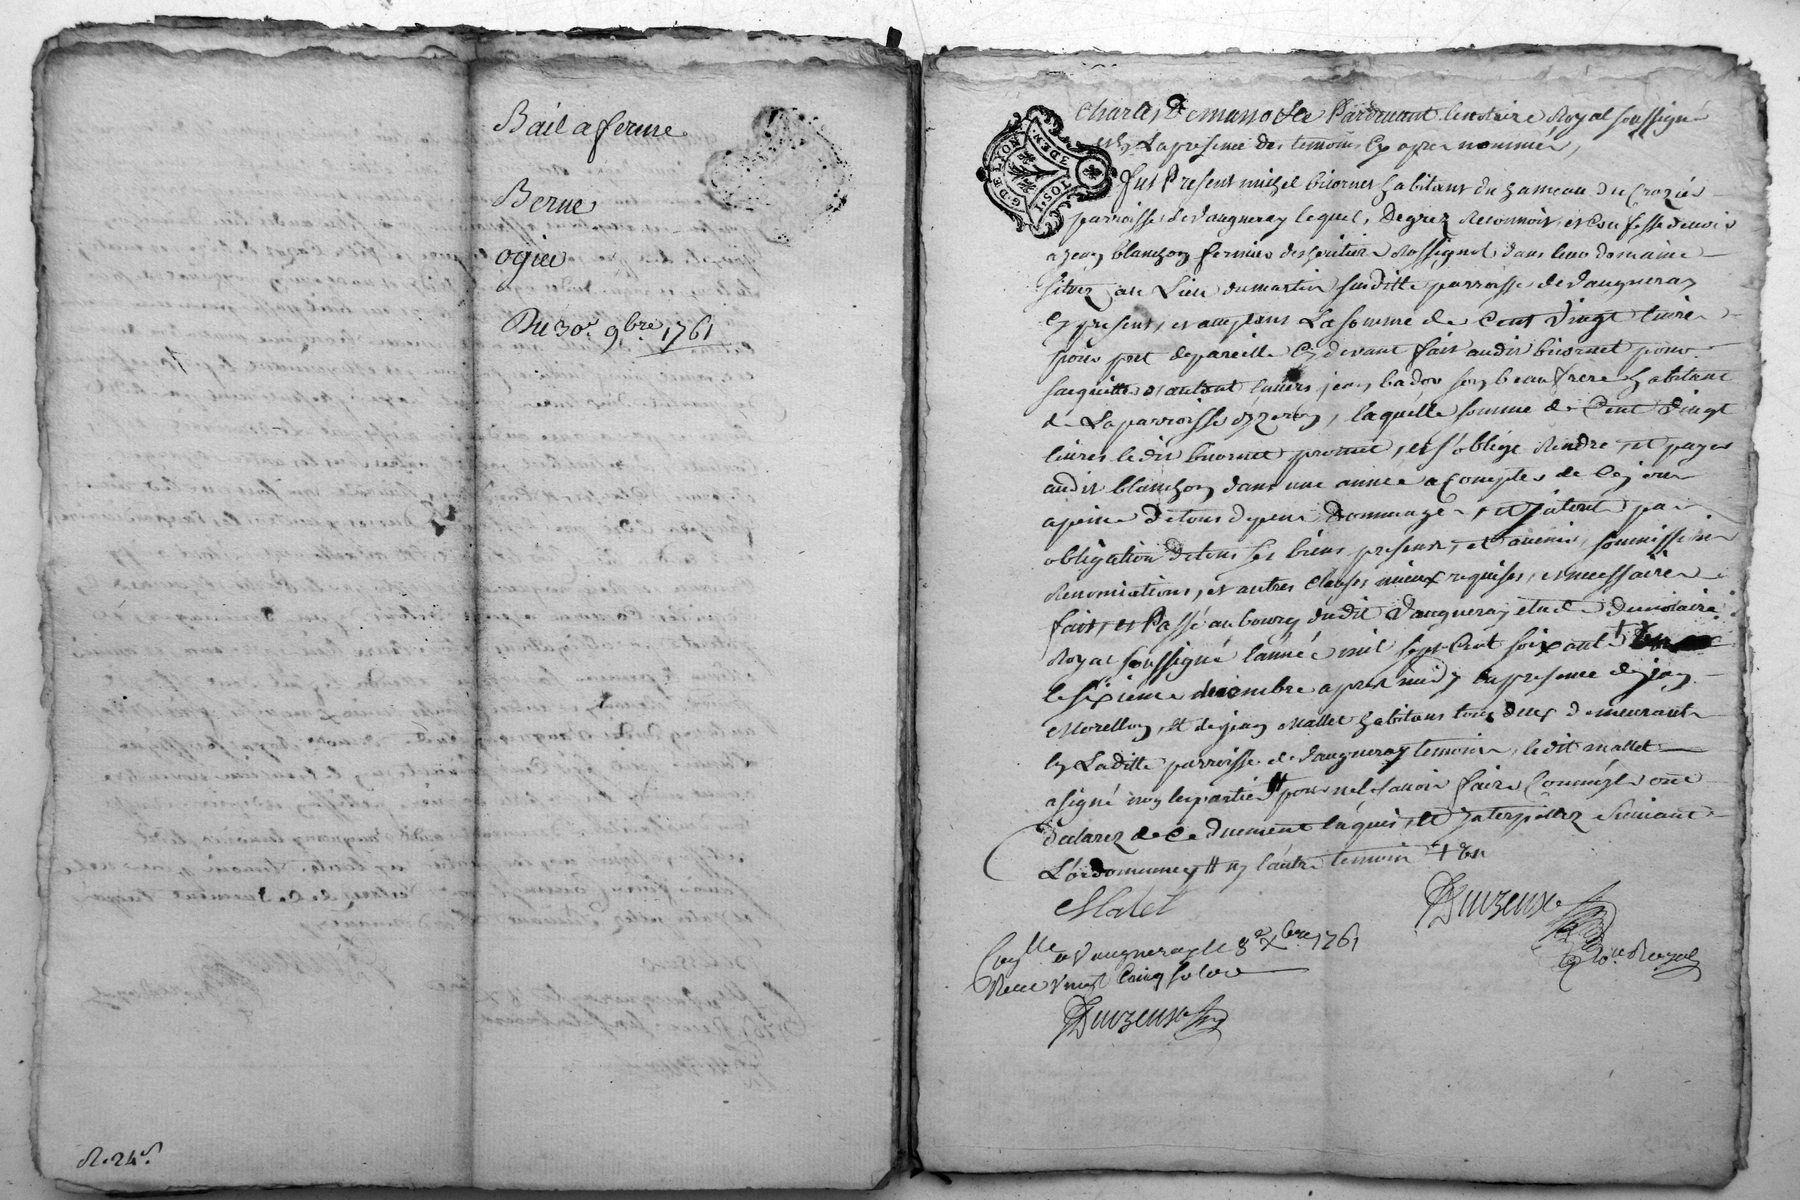 Bail a ferme
Berne
ogier
Du 30e 9bre 1761
R. 24s
G. DE LYON
TOS. I. 3 DEN.
Pardevant le notaire Royal soussigné
et en La presence des temoins cy apres nommés,
fut Present michel biornet habitant du hameau du Crozier
parroisse de Vaugneray lequel, De gréz Reconnoit, et confesse devoir
a jean blanchon fermier des heritiers Rossignol dans leur domaine
situez au Lieu du martin susditte parroisse de Vaugneray
cy present, et acceptant La somme de Cent Vingt livres
pour pret de pareille cy devant fait audit biornet pour
s'acquitter d'autant envers jean badou son beaufrere habitant
de La parroisse d'yzeron, laquelle somme de Cent Vingt
livres ledit biornet promet, et s'oblige Rendre, et payer
audit blanchon dans une année a Compter de Ce jour
a peine de tous depens Dommages, et jnterets par
obligation de tous ses biens presents, et avenir, soumissions
Renonciations, et autres clauses mieux requises, et necessaires
fait, et Passé au bourg dudit Vaugneray etude du notaire
Royal soussigné l'année mil sept Cent soixante + un
le sixieme decembre apres midy en presence de jean
Morellon, et de jean Mallet habitans tous deux demeurant
en Laditte parroisse de Vaugneray temoins, ledit mallet
a signé non les parties # pour ne le savoir faire Comme ils ont
declaréz de Ce duement enquis, et jnterpellez suivant
L'ordonnance # ny l'autre temoin + un
Malet
Duvzeux
Conlle a Vaugneray le 8e Xbre 1761
Recu vingt Cinq sols
Nore Royal
Duvzeux